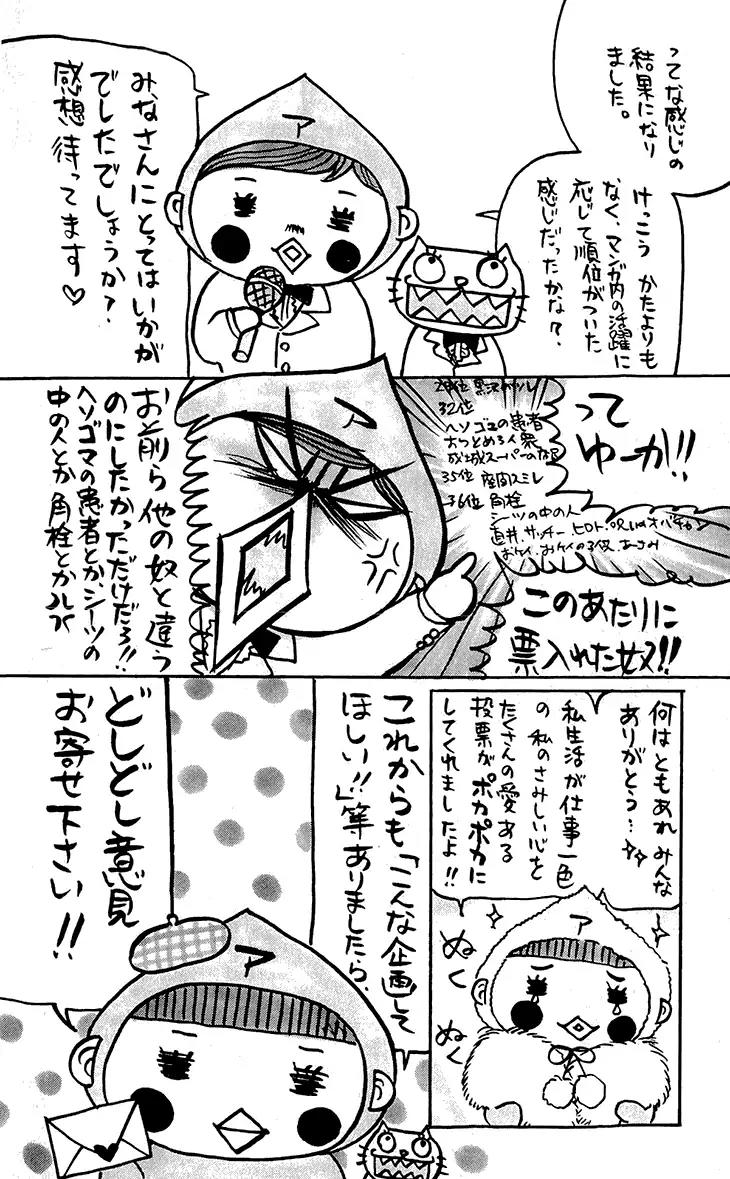 ってな感じの
結果になり
ました。
けっこう かたよりも
なく、マンガ内の活躍に
応じて順位がついた
感じだったかな?
みなさんにとってはいかが
でしたでしょうか?
感想待ってます♡
ア
って
ゆーか!!
32位
ヘソゴマの患者
おつとめろ
成城スーパーの
35位 座間スミレ
36位 角栓
シーツの中の人
直井、サッチー、ヒロト、
このあたりに
票入れた奴!!
お前ら他の奴と違う
のにしたかっただけだろ!!
ヘソゴマの患者とか、シーツの
中の人とか角栓とかルルベ
ア
何はともあれ みんな
ありがとう…
私生活が仕事一色
の私のさみしい心を
たくさんの愛ある
投票が ポカポカに
してくれましたよ!!
ぬく
ぬく
ア
これからも「こんな企画して
ほしい!!」等ありましたら、
どしどし意見
お寄せ下さい!!
ア